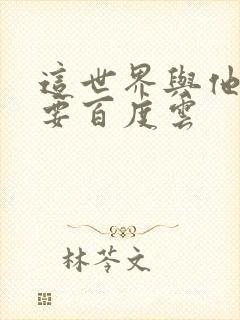 這世界與他
要百度雲
林苓文